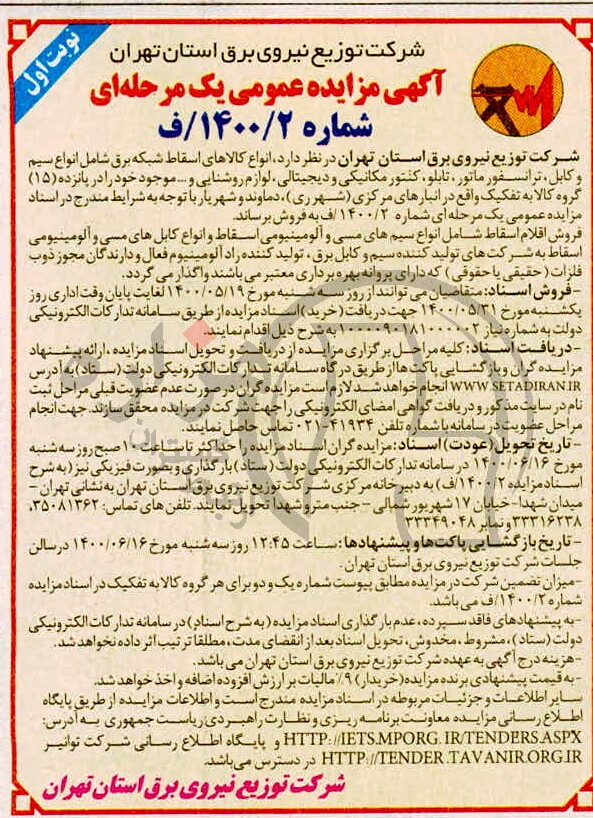 نوبت اول
شرکت توزیع نیروی برق استان تهران
آگهی مزایده عمومی یک مرحله‌ای
شماره ۱۴۰۰/۲/ف
شرکت توزیع نیروی برق استان تهران در نظر دارد، انواع کالاهای اسقاط شبکه برق شامل انواع سیم
و کابل، ترانسفور ماتور، تابلو، کنتور مکانیکی و دیجیتالی، لوازم روشنایی و... موجود خود را در پانزده (۱۵)
گروه کالا به تفکیک واقع در انبارهای مرکزی (شهرری)، دماوند و شهریار با توجه به شرایط مندرج در اسناد
مزایده عمومی یک مرحله‌ای شماره ۱۴۰۰/۲/ف به فروش برساند.
فروش اقلام اسقاط شامل انواع سیم های مسی و آلومینیومی اسقاط و انواع کابل های مسی و آلومینیومی
اسقاط به شرکت های تولید کننده سیم و کابل برق، تولید کننده راد آلومینیوم فعال و دارندگان مجوز ذوب
فلزات (حقیقی یا حقوقی) که دارای پروانه بهره برداری معتبر می باشند واگذار می گردد.
-فروش اسناد: متقاضیان می توانند از روز سه شنبه مورخ ۱۴۰۰/۰۵/۱۹ لغایت پایان وقت اداری روز
یکشنبه مورخ ۱۴۰۰/۰۵/۳۱ جهت دریافت (خرید) اسناد مزایده از طریق سامانه تدارکات الکترونیکی
دولت به شماره نیاز ۱۰۰۰۰۹۰۱۸۱۰۰۰۰۰۲ به شرح ذیل اقدام نمایند.
-دریافت اسناد: کلیه مراحل برگزاری مزایده از دریافت و تحویل اسناد مزایده، ارائه پیشنهاد
مزایده گران و بازگشایی پاکت ها از طریق درگاه سامانه تدارکات الکترونیکی دولت (ستاد) به آدرس
WWW.SETADIRAN.IR انجام خواهد شد. لازم است مزایده گران در صورت عدم عضویت قبلی مراحل ثبت
نام در سایت مذکور و دریافت گواهی امضای الکترونیکی را جهت شرکت در مزایده محقق سازند. جهت انجام
مراحل عضویت در سامانه با شماره تلفن ۴۱۹۳۴-۰۲۱ تماس حاصل نمایند.
-تاریخ تحویل (عودت) اسناد: مزایده گران اسناد مزایده را حداکثر تا ساعت ۱۰ صبح روز سه شنبه
مورخ ۱۴۰۰/۰۶/۱۶ در سامانه تدارکات الکترونیکی دولت (ستاد) بارگذاری و بصورت فیزیکی نیز (به شرح
اسناد مزایده ۱۴۰۰/۲/ف) به دبیرخانه مرکزی شرکت توزیع نیروی برق استان تهران به نشانی تهران -
میدان شهدا- خیابان ۱۷ شهریور شمالی - جنب مترو شهدا تحویل نمایند. تلفن های تماس: ۳۵۰۸۱۳۶۲،
۳۳۳۱۶۲۳۸ و نمابر ۳۳۳۴۹۰۴۸
-تاریخ بازگشایی پاکت ها و پیشنهادها: ساعت ۱۲:۴۵ روز سه شنبه مورخ ۱۴۰۰/۰۶/۱۶ در سالن
جلسات شرکت توزیع نیروی برق استان تهران.
-میزان تضمین شرکت در مزایده مطابق پیوست شماره یک و دو برای هر گروه کالا به تفکیک در اسناد مزایده
شماره ۱۴۰۰/۲/ف می باشد.
-به پیشنهادهای فاقد سپرده، عدم بارگذاری اسناد مزایده (به شرح اسناد) در سامانه تدارکات الکترونیکی
دولت (ستاد)، مشروط، مخدوش، تحویل اسناد بعد از انقضای مدت، مطلقا ترتیب اثر داده نخواهد شد.
-هزینه درج آگهی به عهده شرکت توزیع نیروی برق استان تهران می باشد.
-به قیمت پیشنهادی برنده مزایده (خریدار) ۹٪ مالیات بر ارزش افزوده اضافه و اخذ خواهد شد.
سایر اطلاعات و جزئیات مربوطه در اسناد مزایده مندرج است و اطلاعات مزایده از طریق پایگاه
اطلاع رسانی مزایده معاونت برنامه ریزی و نظارت راهبردی ریاست جمهوری به آدرس:
HTTP://IETS.MPORG.IR/TENDERS.ASPX و پایگاه اطلاع رسانی شرکت توانیر
HTTP://TENDER.TAVANIR.ORG.IR در دسترس می‌باشد.
شرکت توزیع نیروی برق استان تهران